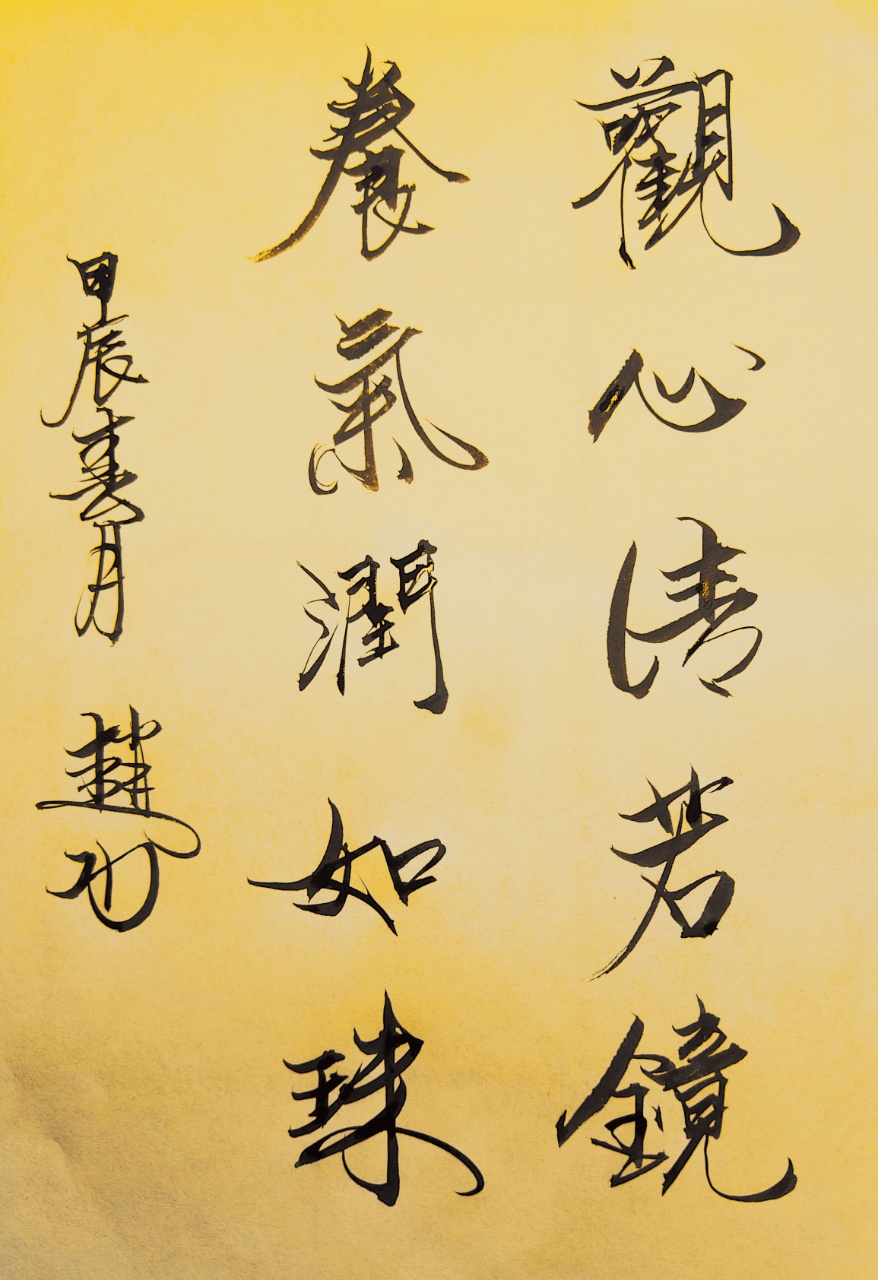 觀心清若鏡
養氣潤如珠
甲辰春月